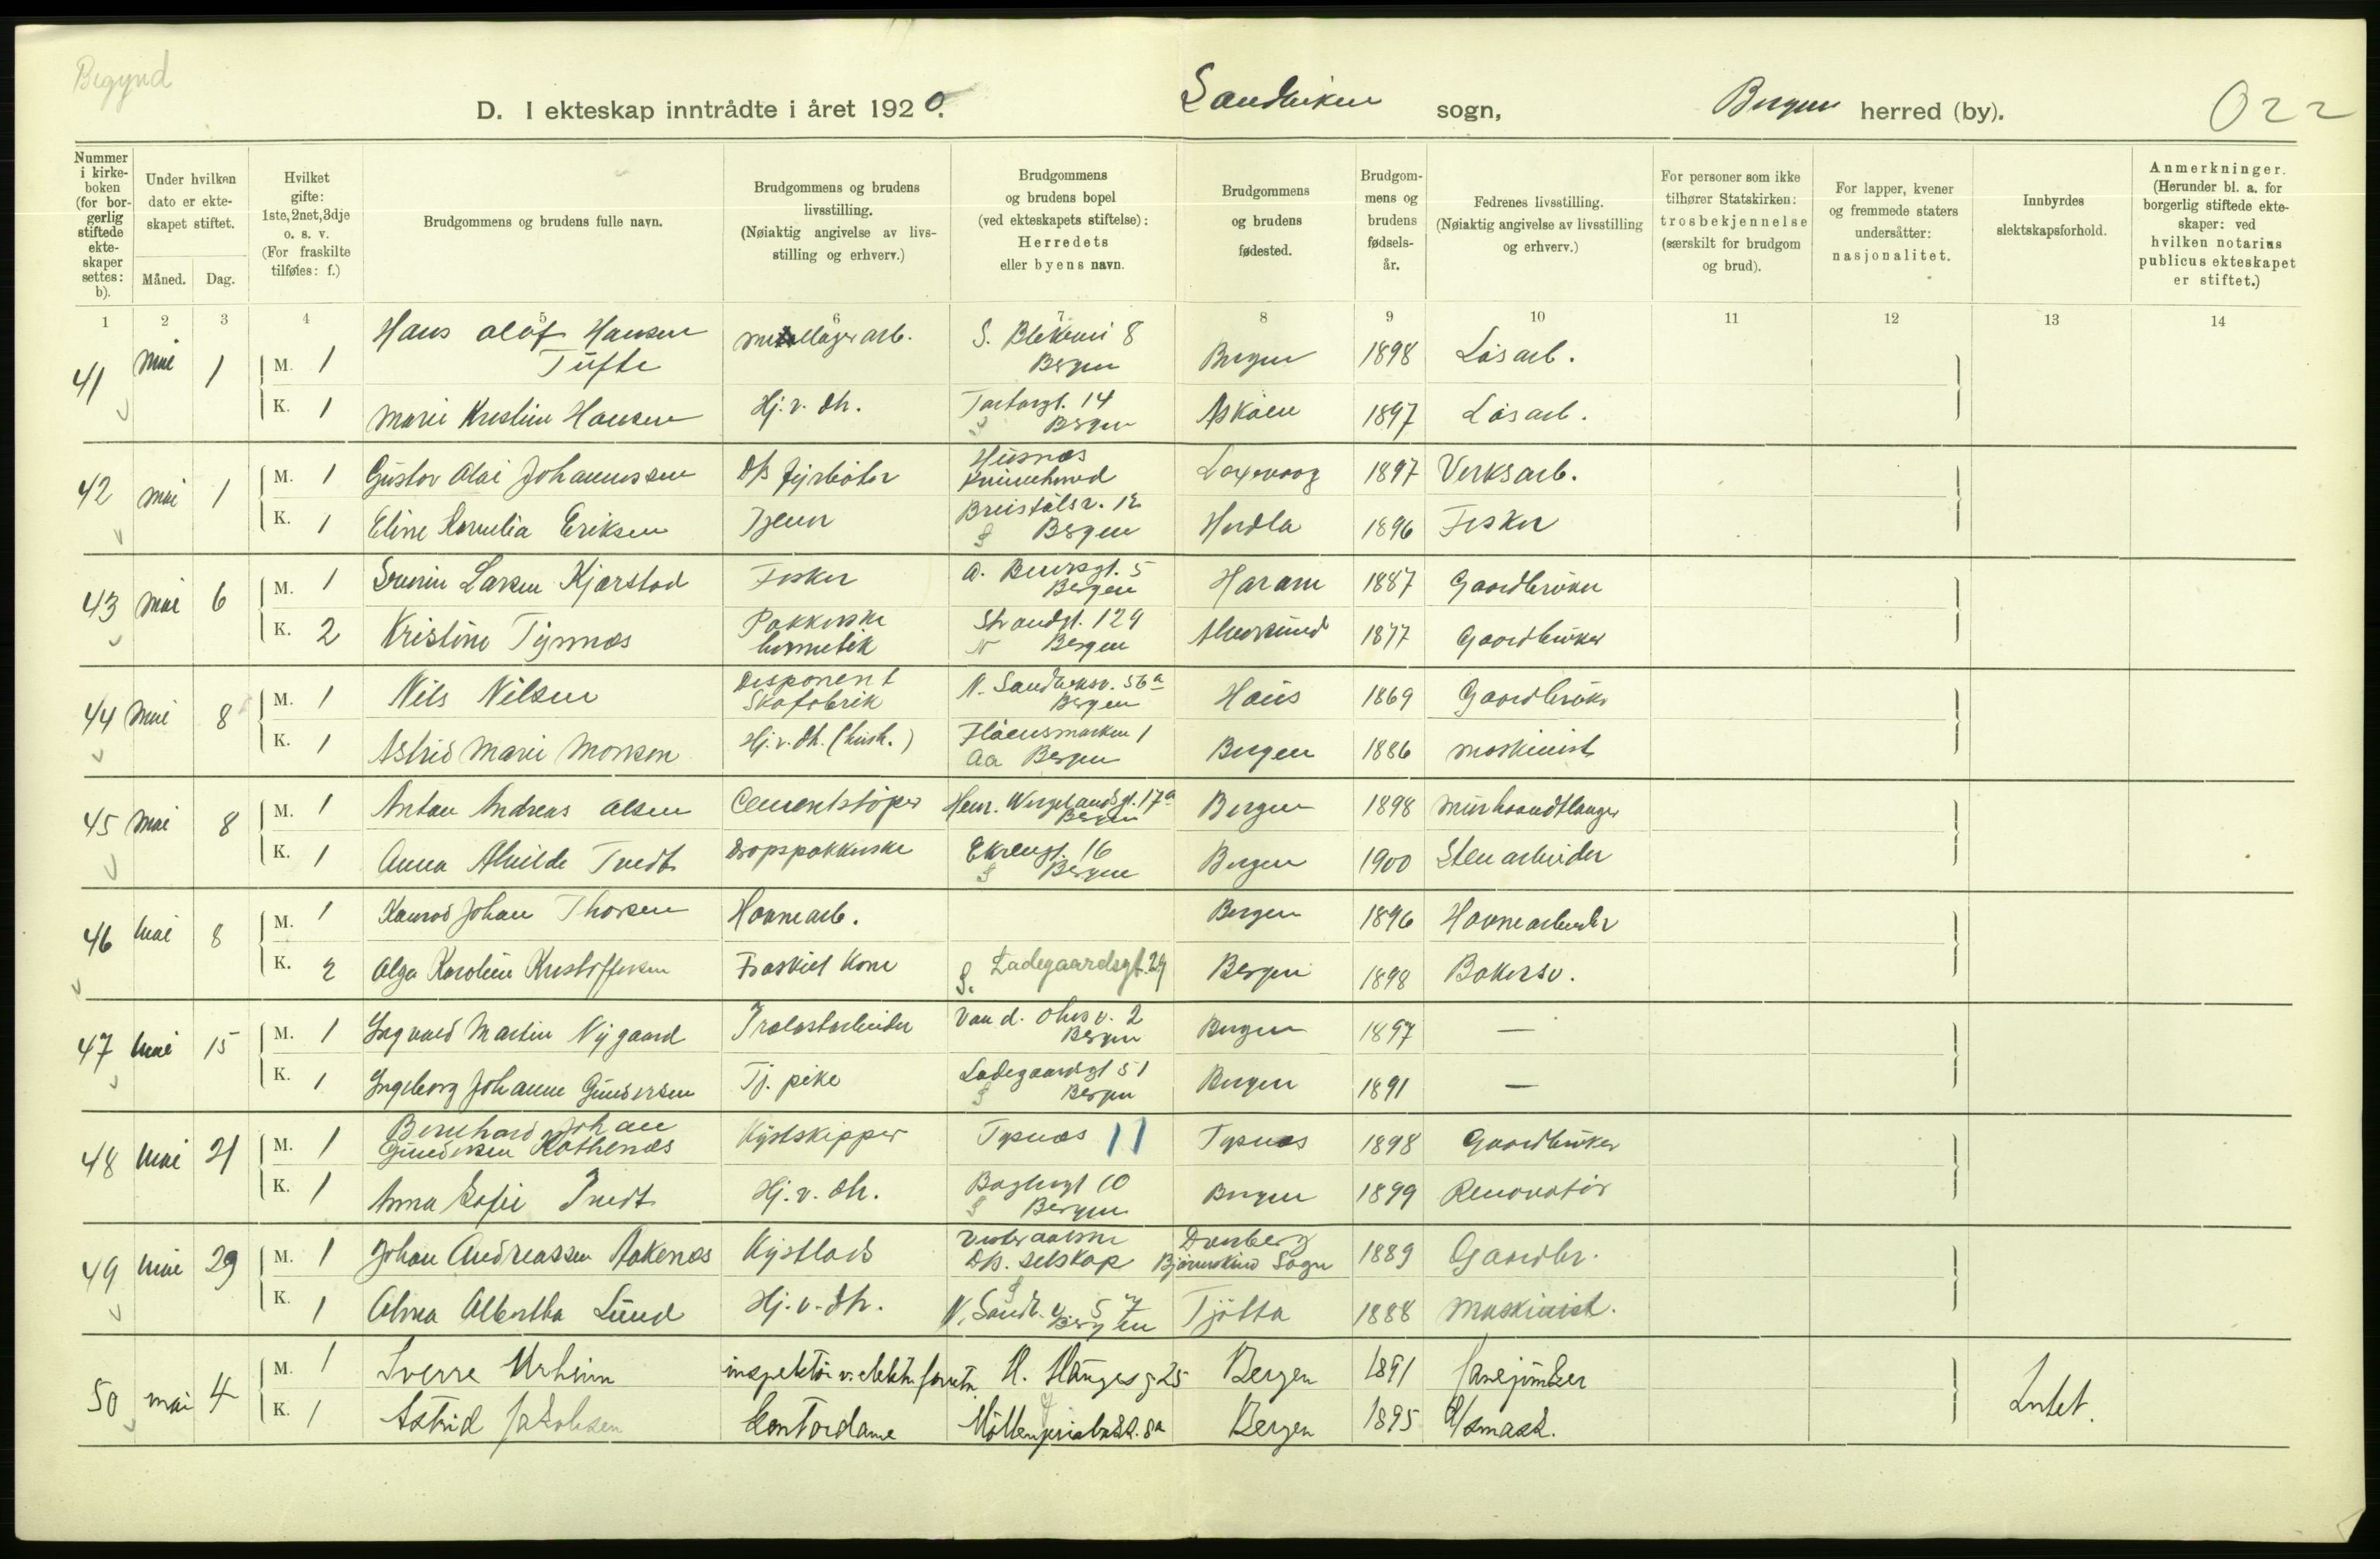 Begynd
D. I ekteskap inntrådte i året 1920. Sandviken sogn, Bergen herred (by). 022
Nummer i kirkeboken (for borgerlig stiftede ekteskaper settes: b).
Under hvilken dato er ekteskapet stiftet. Måned. Dag.
Hvilket gifte: 1ste, 2net, 3dje o. s. v. (For fraskilte tilføies: f.)
Brudgommens og brudens fulle navn.
Brudgommens og brudens livsstilling. (Nøiaktig angivelse av livsstilling og erhverv.)
Brudgommens og brudens bopel (ved ekteskapets stiftelse): Herredets eller byens navn.
Brudgommens og brudens fødested.
Brudgommens og brudens fødselsår.
Fedrenes livsstilling. (Nøiaktig angivelse av livsstilling og erhverv.)
For personer som ikke tilhører Statskirken: trosbekjennelse (særskilt for brudgom og brud).
For lapper, kvener og fremmede staters undersåtter: nasjonalitet.
Innbyrdes slektskapsforhold.
Anmerkninger. (Herunder bl. a. for borgerlig stiftede ekteskaper: ved hvilken notarius publicus ekteskapet er stiftet.)
1 2 3 4 5 6 7 8 9 10 11 12 13 14
41 mai 1 M. 1 Hans Olaf Hansen Tufte S. Blekevei 8 Bergen Bergen 1898 Løsarb.
K. 1 Marie Kristine Hansen Hj. v. dh. 14 S Bergen Askøen 1897 Løsarb.
42 mai 1 M. 1 Gustav Olai Johannessen D/s fyrbøter Husnes Kvinnherred Laxevaag 1897 Verksarb.
K. 1 Eline Kornelia Eriksen Tjener Breistølsv. 12 S Bergen Herdla 1896 Fisker
43 mai 6 M. 1 Severin Larsen Kjærstad Fisker 5 Bergen Haram 1887 Gaardbruker
K. 2 Kristine Tysnes Pakkerske hermetik Strandgt. 129 N Bergen Alversund 1877 Gaardbruker
44 mai 8 M. 1 Nils Nilsen Disponent Skofabrik N. Sandviksv. 56a Bergen Haus 1869 Gaardbruk.
K. 1 Astrid Marie Monsen Hj. v. dh. (hush.) Fløensmarken 1 Aa Bergen Bergen 1886 maskinist
45 mai 8 M. 1 Anton Andreas Olsen Cementstøper Henr. Wergelandsgt. 17a Bergen Bergen 1898 murhaandtlanger
K. 1 Anna Alvilde Tvedt Dropspakkerske Ekrengt. 16 S Bergen Bergen 1900 Stenarbeider
46 mai 8 M. 1 Konrad Johan Thorsen Havnearb. Bergen 1896 Havnearbeider
K. 2 Olga Karoline Kristoffersen Fraskilt kone S. Ladegaardsgt. 29 Bergen 1898 Bakersv.
47 mai 15 M. 1 Ingvald Martin Nygaard Trælastarbeider Van d. Ohesv. 2 Bergen Bergen 1897 —
K. 1 Ingeborg Johanne Gundersen Tj. pike Ladegaardsgt 51 S Bergen Bergen 1891 —
48 mai 21 M. 1 Bernhard Johan Gundersen Kystskipper Tysnes 11 Tysnes 1898 Gaardbruker
K. 1 Anna Sofie Tvedt Hj. v. dh. Baglergt 10 S Bergen Bergen 1899 Renovatør
49 mai 29 M. 1 Johan Andreassen Aakenes Kystlods Vesteraalens D/s. selskap 1889 Gaardbr.
K. 1 Alma Albertha Lund Hj. v. dh. S N. Sandv. v. 57 Bergen Tjøtta 1888 Maskinist.
50 mai 4 M. 1 Sverre Urheim inspektør v. elektr. forretn. H. Haugesg 25 Bergen 1891
K. 1 Astrid Jakobsen Kontordame 8a Bergen 1895 Intet.